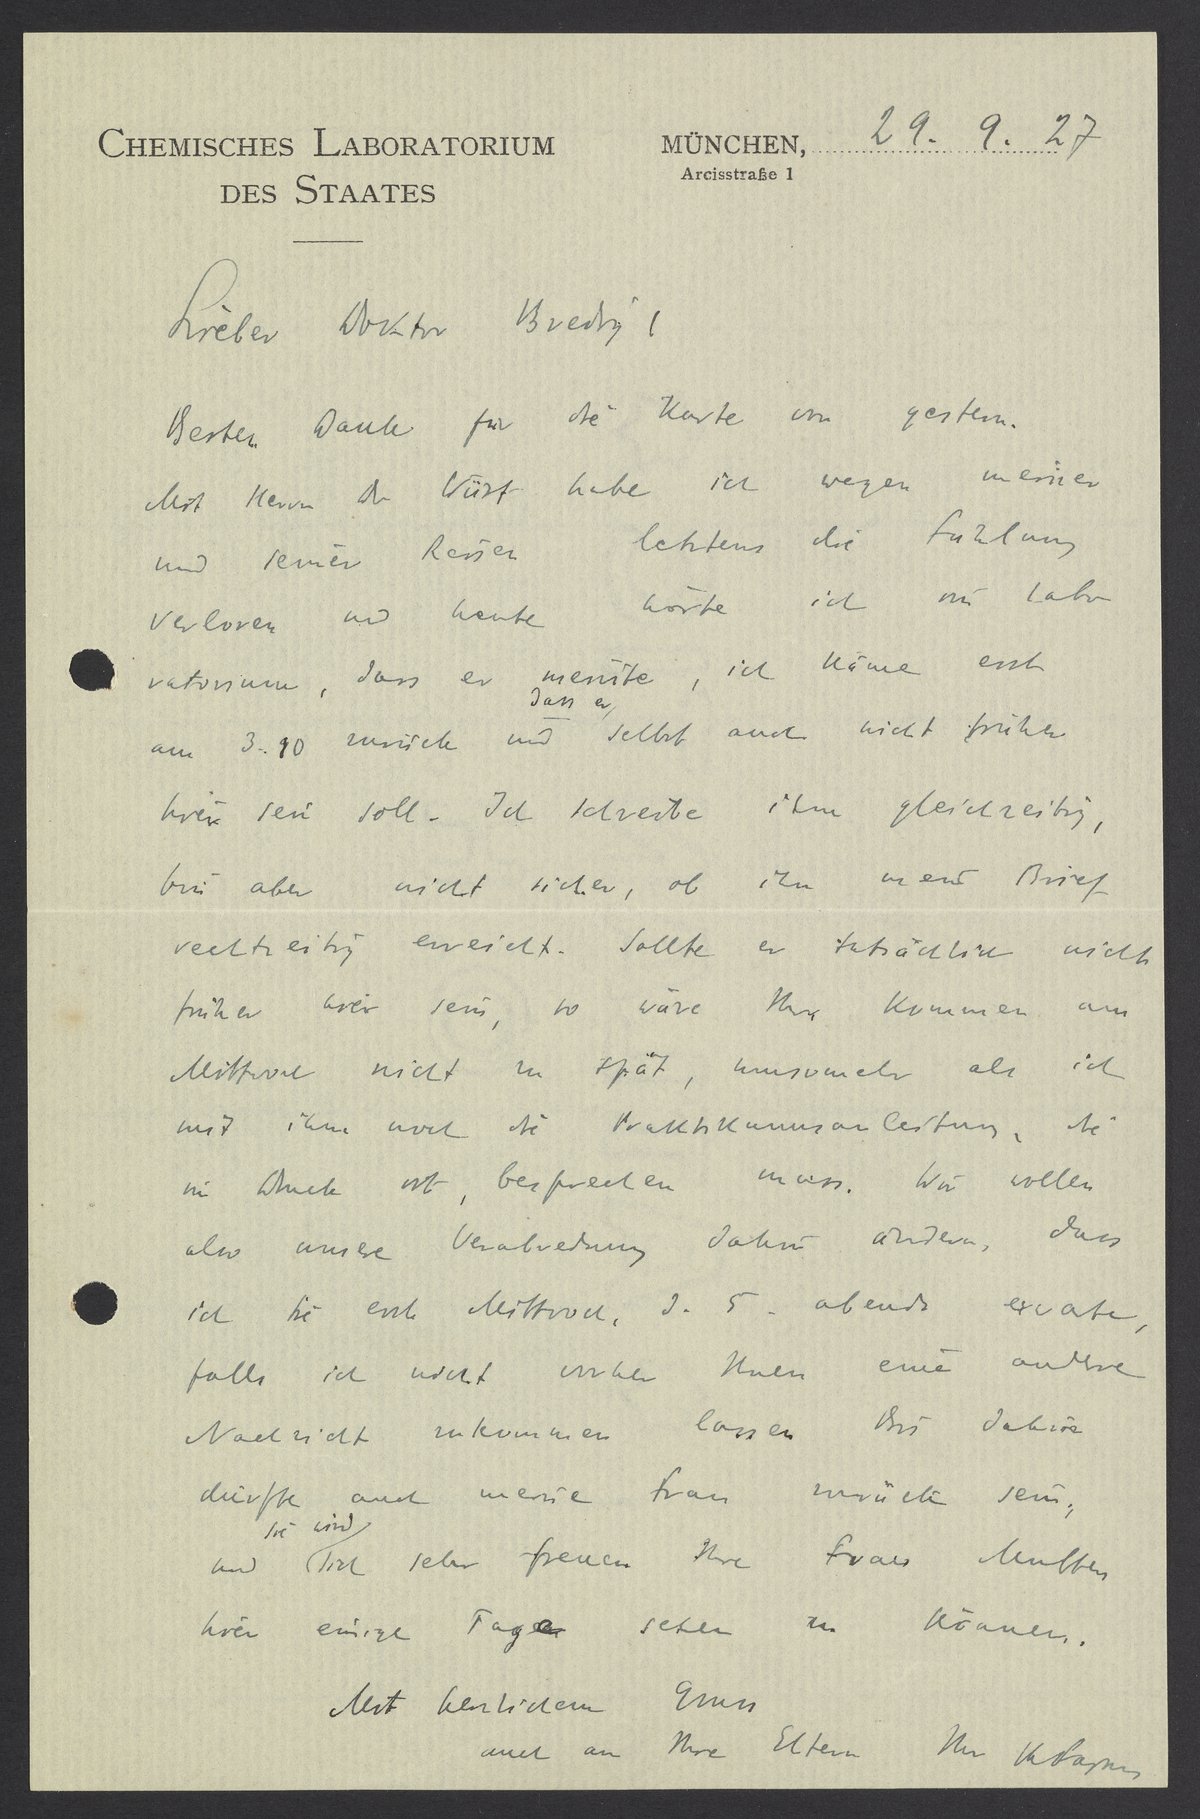 CHEMISCHES LABORATORIUM
DES STAATES
MÜNCHEN, 29. 9. 27
Arcisstraße 1
Lieber Doktor Bredig!
Besten Dank für die Karte von gestern.
Mit Herrn Dr Wüst habe ich wegen meiner
und seiner Reisen letztens die Fühlung
verloren und heute hörte ich im Labo
ratorium, dass er meinte, ich käme erst
am 3.10 zurück und dass er selbst auch nicht früher
hier sein soll. Ich schreibe ihm gleichzeitig,
bin aber nicht sicher, ob ihn mein Brief
rechtzeitig erreicht. Sollte er tatsächlich nicht
früher hier sein, so wäre Ihr Kommen am
Mittwoch nicht zu spät, umsomehr als ich
mit ihm noch die Praktikumsanleitung, die
im Druck ist, besprechen muss. Wir wollen
also unsere Verabredung dahin ändern, dass
ich Sie erst Mittwoch, d. 5. abends erwarte,
falls ich nicht vorher Ihnen eine andere
Nachricht zukommen lassen Bis dahin
dürfte auch meine Frau zurück sein,
und sie wird sich sehr freuen Ihre Frau Mutter
hier einige Tage sehen zu können.
Mit herzlichem Gruss
auch an Ihre Eltern Ihr K Fajans